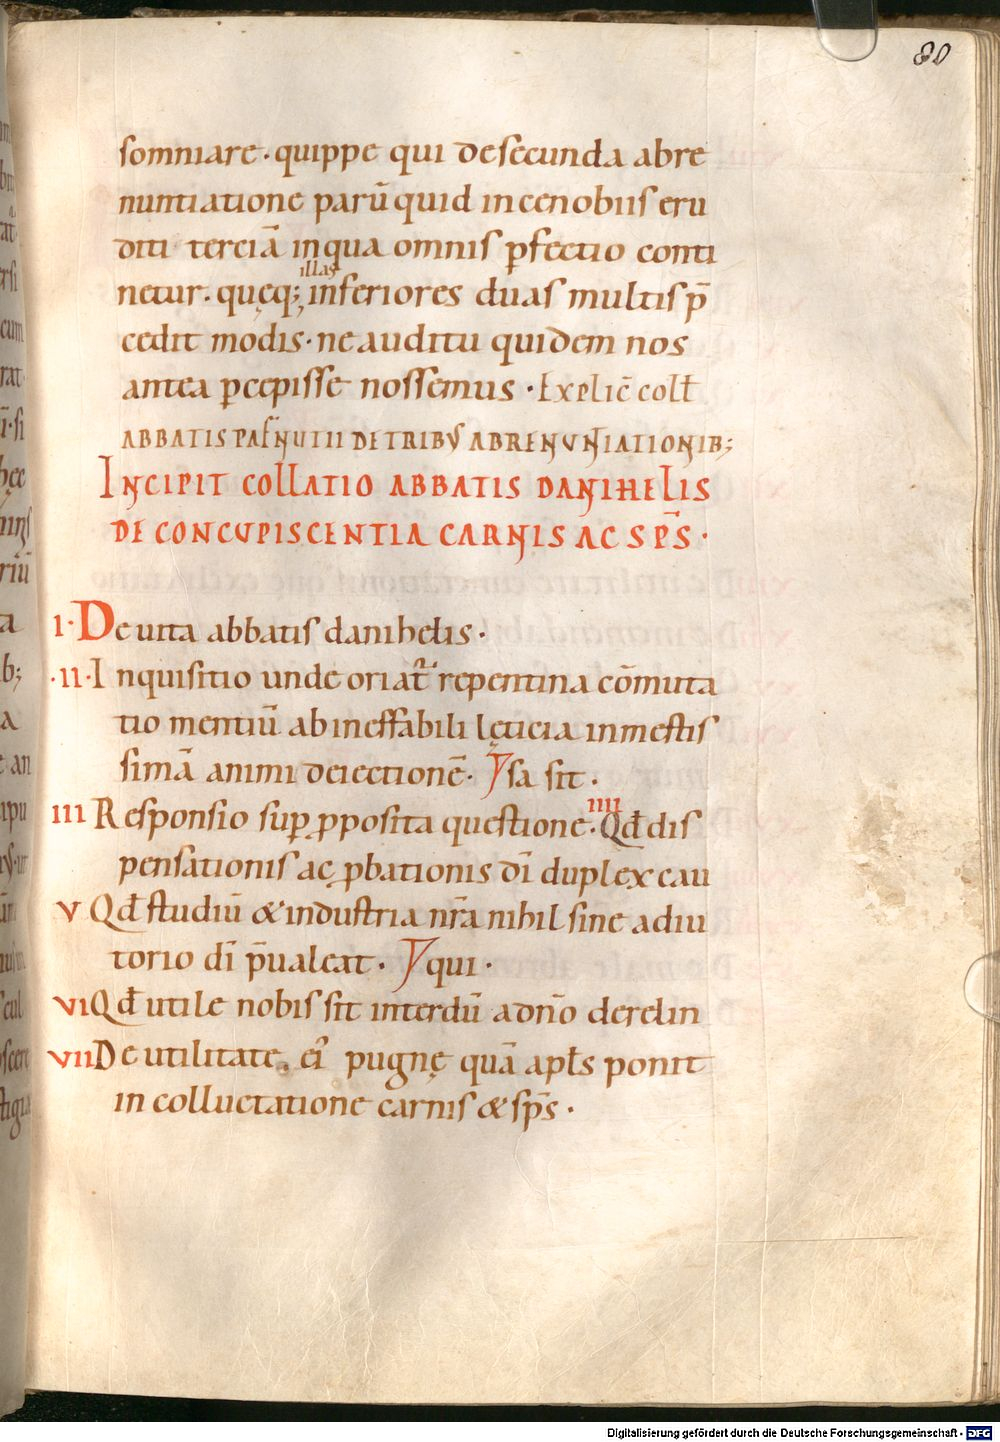 80
somniare · quippe qui de secunda abre
nuntiatione parū quid in cenobiis eru
diti terciā in qua omnis ꝑfectio conti
netur · quęq; illas inferiores duas multis p̄
cedit modis · ne auditu quidem nos
antea ꝑcepisse nossemus · Explic̄ coll̄
ABBATIS PAFNUTII DE TRIBUS ABRENUNTIATIONIB;
INCIPIT COLLATIO ABBATIS DANIHELIS
DE CONCUPISCENTIA CARNIS AC SP̄S ·
I · De vita abbatis danihelis ·
· II · Inquisitio unde oriat᷑ repentina cōmuta
tio mentiū ab ineffabili lęticia in mestis
simā animi deiectionē · sa sit ·
III Responsio suꝑ ꝓposita questione · IIII Qđ dis
pensationis ac ꝓbationis dī duplex cau
V Qđ studiū & industria nr̄a nihil sine adiu
torio dī p̄ualeat · qui ·
VI Qđ utile nobis sit interdū a dn̄o derelin
VII De utilitate ei᷑ pugnę quā apl̄s ponit
in colluctatione carnis & sp̄s ·
Digitalisierung gefördert durch die Deutsche Forschungsgemeinschaft - DFG